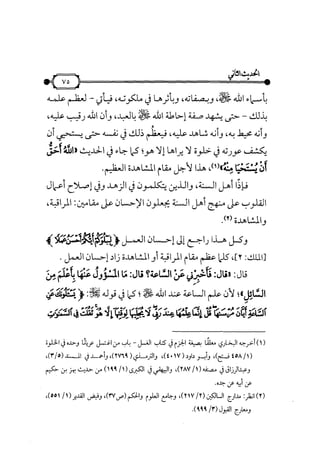 الحديث الثاني
٧٥
بأسماء الله ﷻ، وبصفاته، وبأثرها في ملكوته، فيأتي - لعظم علمه
بذلك - حتى يشهد صفة إحاطة الله ﷻ بالعبد، وأن الله رقيب عليه،
وأنه محيط به، وأنه شاهد عليه، فيعظم ذلك في نفسه حتى يستحيي أن
يكشف عورته في خلوة لا يراها إلا هو؛ كما جاء في الحديث «اللهُ أَحَقُّ
أَنْ يُسْتَحْيَا مِنْهُ»(١)، هذا لأجل مقام المشاهدة العظيم.
فإذًا أهل السنة، والذين يتكلمون في الزهد وفي إصلاح أعمال
القلوب على منهج أهل السنة يجعلون الإحسان على مقامين: المراقبة،
والمشاهدة(٢).
وكل هذا راجع إلى إحسان العمل ﴿لِيَبْلُوَكُمْ أَيُّكُمْ أَحْسَنُ عَمَلًا﴾
[الملك: ٢]، كلما عظم مقام المراقبة أو المشاهدة زاد إحسان العمل.
قال: «قال: فَأَخْبِرْنِي عَنْ السَّاعَةِ؟ قال: مَا الْمَسْئُولُ عَنْهَا بِأَعْلَمَ مِنَ
السَّائِلِ»؛ لأن علم الساعة عند الله ﷻ؛ كما في قوله ﷻ: ﴿يَسْئَلُونَكَ عَنِ
السَّاعَةِ أَيَّانَ مُرْسَاهَا قُلْ إِنَّمَا عِلْمُهَا عِنْدَ رَبِّي لَا يُجَلِّيهَا لِوَقْتِهَا إِلَّا هُوَ ثَقُلَتْ فِي السَّمَاوَاتِ
(١) أخرجه البخاري معلقًا بصيغة الجزم في كتاب الغسل - باب من اغتسل عريانًا وحده في الخلوة
(١/ ٤٥٨ فتح)، وأبو داود (٤٠١٧)، والترمذي (٢٧٦٩)، وأحمد في المسند (٥/ ٣)،
وعبدالرزاق في مصنفه (١/ ٢٨٧)، والبيهقي في الكبرى (١/ ١٩٩) من حديث بهز بن حكيم
عن أبيه عن جده.
(٢) انظر: مدارج السالكين (٢/ ٢١٧)، وجامع العلوم والحكم (ص٣٧)، وفيض القدير (١/ ٥٥١)،
ومعارج القبول (٣/ ٩٩٩).